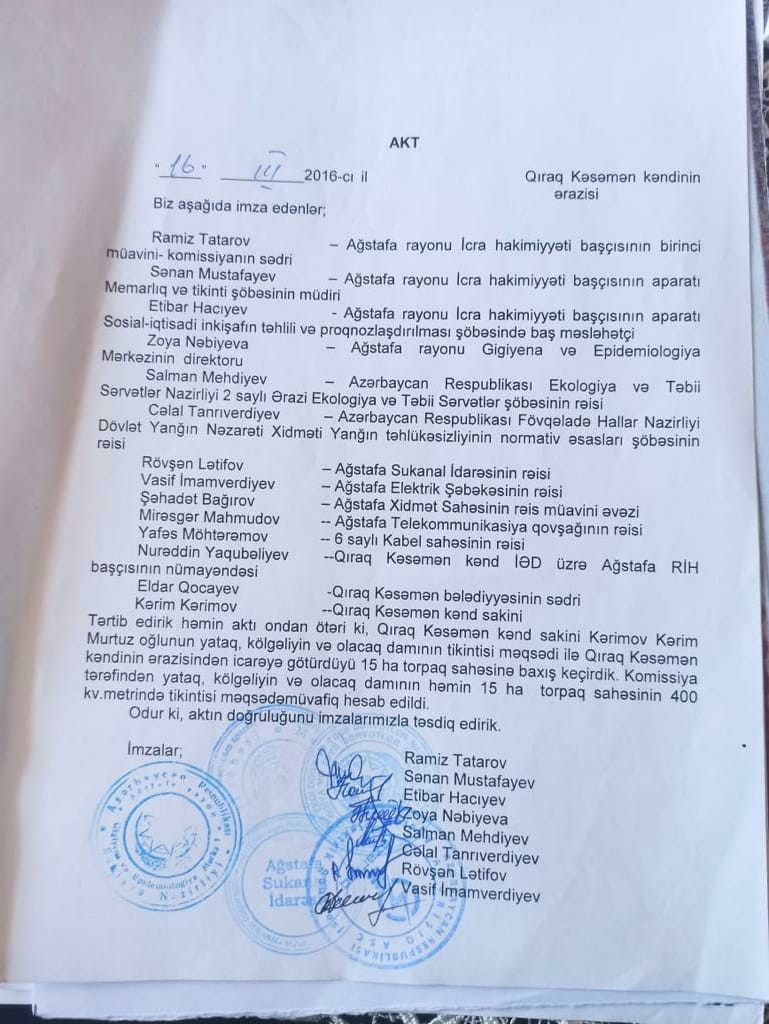 AKT
"16" III 2016-cı il Qıraq Kəsəmən kəndinin
ərazisi
Biz aşağıda imza edənlər;
Ramiz Tatarov – Ağstafa rayonu İcra hakimiyyəti başçısının birinci
müavini- komissiyanın sədri
Sənan Mustafayev – Ağstafa rayonu İcra hakimiyyəti başçısının aparatı
Memarlıq və tikinti şöbəsinin müdiri
Etibar Hacıyev - Ağstafa rayonu İcra hakimiyyəti başçısının aparatı
Sosial-iqtisadi inkişafın təhlili və proqnozlaşdırılması şöbəsində baş məsləhətçi
Zoya Nəbiyeva – Ağstafa rayonu Gigiyena və Epidemiologiya
Mərkəzinin direktoru
Salman Mehdiyev – Azərbaycan Respublikası Ekologiya və Təbii
Sərvətlər Nazirliyi 2 saylı Ərazi Ekologiya və Təbii Sərvətlər şöbəsinin rəisi
Cəlal Tanrıverdiyev – Azərbaycan Respublikası Fövqəladə Hallar Nazirliyi
Dövlət Yanğın Nəzarəti Xidməti Yanğın təhlükəsizliyinin normativ əsasları şöbəsinin
rəisi
Rövşən Lətifov – Ağstafa Sukanal İdarəsinin rəisi
Vasif İmamverdiyev – Ağstafa Elektrik Şəbəkəsinin rəisi
Şəhadət Bağırov – Ağstafa Xidmət Sahəsinin rəis müavini əvəzi
Mirəsgər Mahmudov -- Ağstafa Telekommunikasiya qovşağının rəisi
Yafəs Möhtərəmov -- 6 saylı Kabel sahəsinin rəisi
Nurəddin Yaqubəliyev --Qıraq Kəsəmən kənd İƏD üzrə Ağstafa RİH
başçısının nümayəndəsi
Eldar Qocayev -Qıraq Kəsəmən bələdiyyəsinin sədri
Kərim Kərimov --Qıraq Kəsəmən kənd sakini
Tərtib edirik həmin aktı ondan ötəri ki, Qıraq Kəsəmən kənd sakini Kərimov Kərim
Murtuz oğlunun yataq, kölgəliyin və olacaq damının tikintisi məqsədi ilə Qıraq Kəsəmən
kəndinin ərazisindən icarəyə götürdüyü 15 ha torpaq sahəsinə baxış keçirdik. Komissiya
tərəfindən yataq, kölgəliyin və olacaq damının həmin 15 ha torpaq sahəsinin 400
kv.metrində tikintisi məqsədəmüvafiq hesab edildi.
Odur ki, aktın doğruluğunu imzalarımızla təsdiq edirik.
İmzalar;
Ramiz Tatarov
Sənan Mustafayev
Etibar Hacıyev
Zoya Nəbiyeva
Salman Mehdiyev
Cəlal Tanrıverdiyev
Rövşən Lətifov
Vasif İmamverdiyev
Azərbaycan Respublikası
Ağstafa
Sukanal
İdarəsi